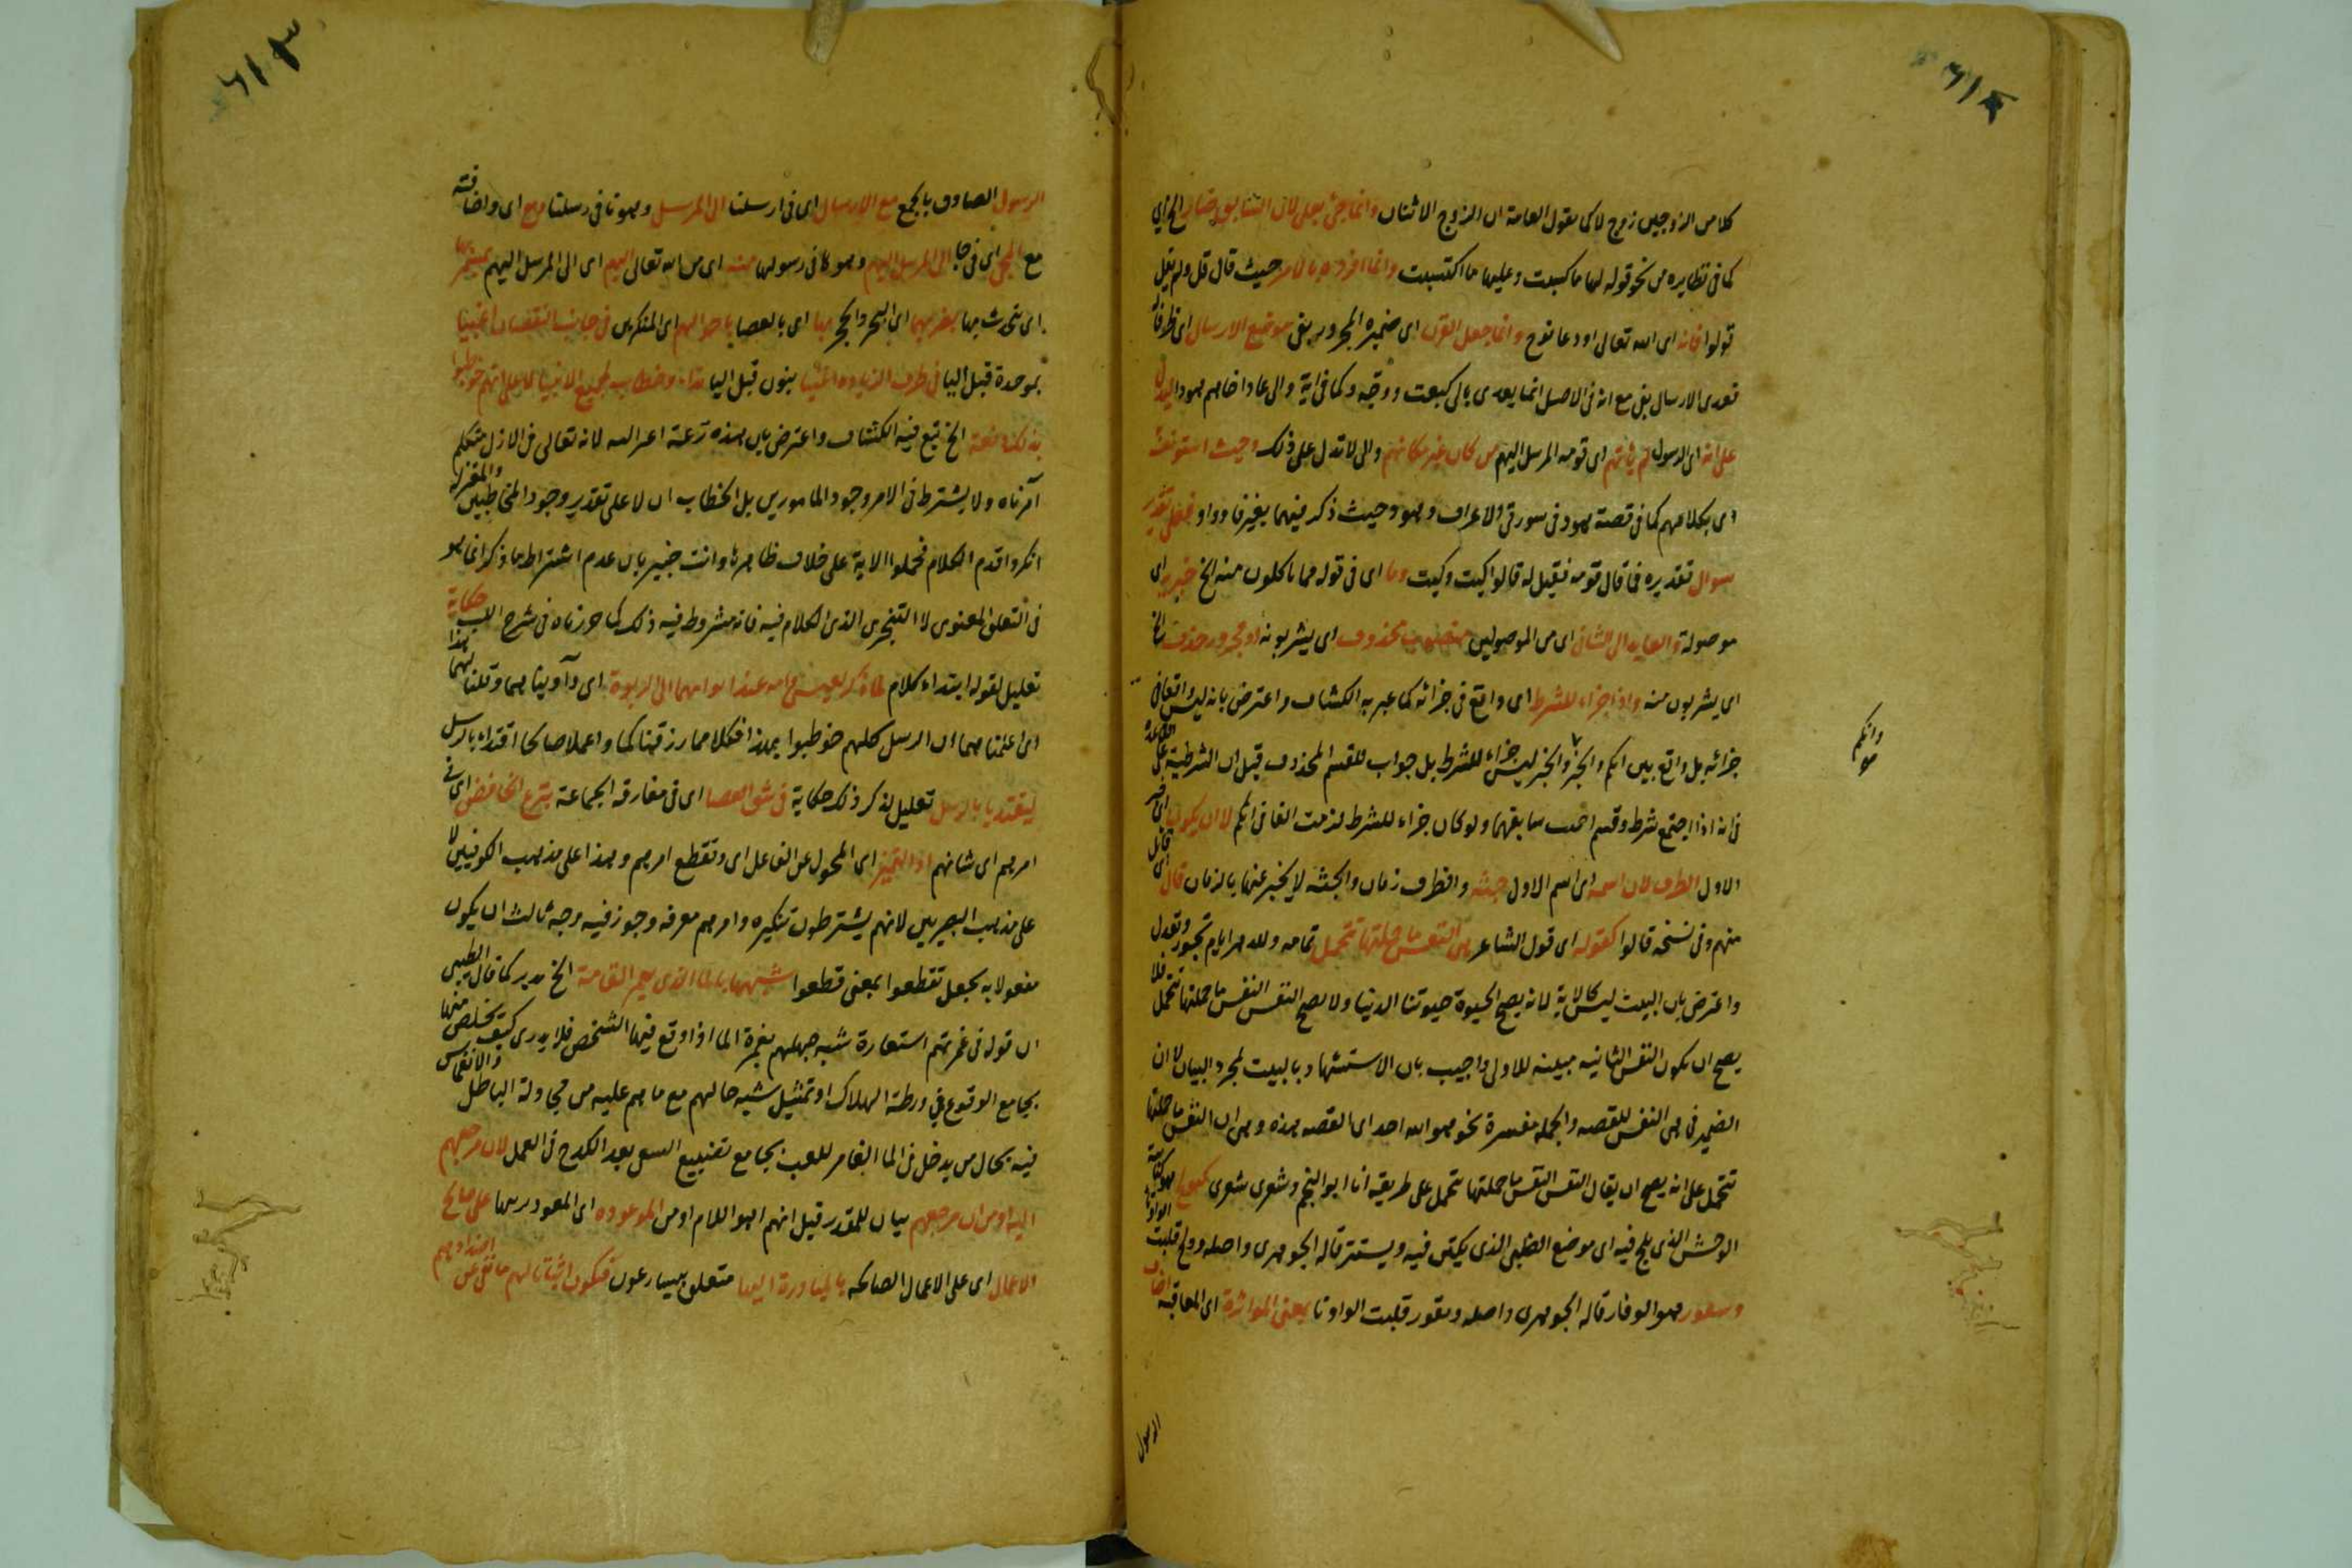 كلا من الزوجين زوج لا كما يقول العامة ان الزوج الاثنان وانما جئ بعلى لان السابق ضار الخ اى
كما فى نظايره من نحو قوله لها ما كسبت وعليها ما اكتسبت وانما افرده بالامر حيث قال قل ولم يقل
قولوا فانه اى الله تعالى او دعا نوح وانما جعل القرن اى ضميره المجرور بفى موضع الارسال اى ظرفا له
تعدى الارسال بفى مع انه فى الاصل انما يعدى بالى كبعث ووجه وكما فى اية والى عاد اخاهم هودا
على انه اى الرسول لم ياتهم اى قومه المرسل اليهم من مكان غير مكانهم والى لا تدل على ذلك وحيث استونف
اى بكلامهم كما فى قصة هود فى سورتى الاعراف وهود حيث ذكر فيهما بغير فا وواو فعلى تقدير
سوال تقديره فما قال قومه فقيل له قالوا كيت وكيت وما اى فى قوله مما تاكلون منه الخ خبريه اى
موصولة والعايد الى الثانى اى من الموصولين منصوب محذوف اى يشربونه او مجرور حذف الخ
اى يشربون منه واذا جزاء للشرط اى واقع فى جزائه كما عبر به الكشاف واعترض بانه ليس واقعا فى
جزائه بل واقع بين انكم والخبر والخبر ليس جزاء للشرط بل جواب للقسم المحذوف قبل ان الشرطية على القاعدة
فى انه اذا اجتمع شرط وقسم اجيب سابقهما ولو كان جزاء للشرط لزمت الفا فى انكم لا ان يكون اى خبر
الاول الظرف لان اسمه اى اسم الاول جثة والظرف زمان والجثة لا يخبر عنها بالزمان قال اى قايل
منهم وفى نسخه قالوا كقوله اى قول الشاعر هى النفس ما حملتها تتحمل تمامه وللدهر ايام تجور وتعدل
واعترض بان البيت ليس كالاية لانه يصح الحيوة حيوتنا الدنيا ولا يصح النفس النفس ما حملتها تتحمل فلا
يصح ان يكون النفس الثانيه مبينه للاولى واجيب بان الاستشهاد بالبيت لمجرد البيان لا ان
الضمير فى هى النفس للقصه والجمله مفسرة نحو هو الله احد اى القصه هذه وهى ان النفس ما حملتها
تتحمل على انه يصح ان يقال النفس النفس ما حملتها تتحمل على طريقه انا ابو النجم وشعرى شعرى كتولج هو كناسة
الوحش الذى يلج فيه اى موضع الظبى الذى يكتن فيه ويستتر قاله الجوهرى واصله وولج قلبت الواو تا
وتيقور هو الوقار قاله الجوهرى واصله ويقور قلبت الواو تا بمعنى المواترة اى المعاقبه اضاف
وانكم
الرسول
الرسول الصادق بالجمع مع الارسال اى فى ارسلنا الى المرسل وهو نا فى رسلنا ومع اى واضافته
مع المجئ اى فى جا الى المرسل اليهم وهو ها فى رسولها منه اى من الله تعالى اليهم اى الى المرسل اليهم
اى تحرث بها بضربهما اى البحر والحجر بها اى بالعصا باحوالهم اى المنكرين فى جانب النقصان اغبيا
بموحدة قبل اليا فى طرف الزياده اغنيا بنون قبل اليا نداء وخطاب لجميع الانبيا لا على انهم خوطبوا
بذلك دفعة الخ تبع فيه الكشاف واعترض بان هذه نزعة اعتزاليه لانه تعالى فى الازل متكلم
آمرناه ولا يشترط فى الامر وجود المامورين بل الخطاب ان لا على تقدير وجود المخاطبين والمعتزله
انكروا قدم الكلام فحملوا الاية على خلاف ظاهرها وانت خبير بان عدم اشتراط ما ذكر انما هو
فى التعلق المعنوى لا التنجيزى الذى الكلام فيه فانه مشروط فيه ذلك كما حررناه فى شرح اللب حكاية
تعليل لقوله ابتداء كلام لما ذكر لعيسى وامه عند ايوائهما الى الربوة اى وآويناهما وقلنا لهما هذا
اى اعلمناهما ان الرسل كلهم خوطبوا بهذا فكلا مما رزقناكما واعملا صالحا اقتداء بالرسل
ليقتديا بالرسل تعليل لذكر ذلك حكاية فى شق العصا اى فى مفارقة الجماعة بنزع الخافض اى فى
امرهم اى شانهم او التمييز اى المحول عن الفاعل اى وتقطع امرهم وهذا على مذهب الكوفيين لا
على مذهب البصريين لانهم يشترطون تنكيره وامرهم معرفه وجوز فيه وجه ثالث ان يكون
مفعولا به بجعل تقطعوا بمعنى قطعوا شبهها بالما الذى يغمر القامة الخ يريد كما قال الطيبى
ان قوله فى غمرتهم استعارة شبه جهلهم بغمرة الما اذا وقع فيها الشخص فلا يدرى كيف يتخلص منها
بجامع الوقوع فى ورطة الهلاك او تمثيل شبه حالهم مع ما هم عليه من محاولة الباطل والانغماس
فيه بحال من يدخل فى الما الغامر للعب بجامع تضييع السعى بعد الكدح فى العمل لان مرجعهم
اليه او من ان مرجعهم بيان للمقدر قبل انهم اهو اللام او من الموعوده اى المعود بها على صالح
الاعمال اى على الاعمال الصالحه بالمبادرة اليها متعلق بيسارعون فيكون اثباتا لهم ما نفى عن اضدادهم